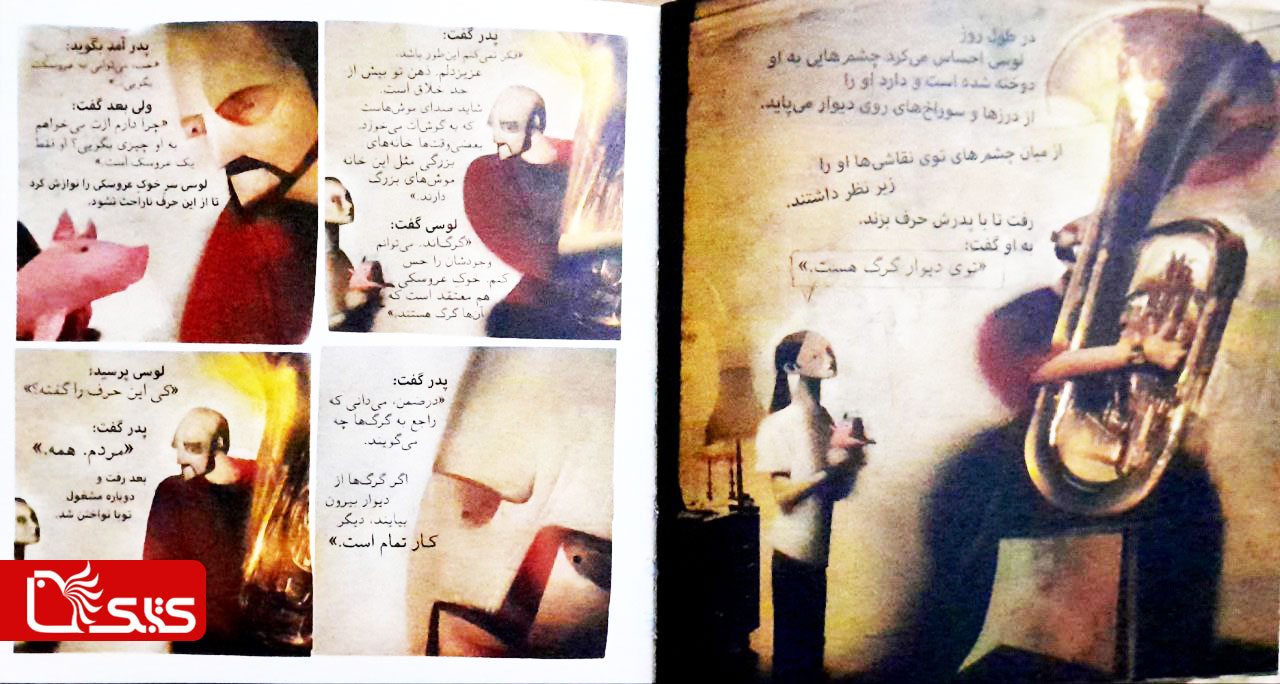 در طول روز
لوسی احساس می‌کرد چشم‌هایی به او
دوخته شده است و دارد او را
از درزها و سوراخ‌های روی دیوار می‌پاید.
از میان چشم‌های توی نقاشی‌ها او را
زیر نظر داشتند.
رفت تا با پدرش حرف بزند.
به او گفت:
«توی دیوار گرگ هست.»
پدر گفت:
«فکر نمی‌کنم این‌طور باشد.
عزیزدلم. ذهن تو بیش از
حد خلاق است.
شاید صدای موش‌هاست
که به گوش‌ات می‌خورد.
بعضی‌وقت‌ها خانه‌های
بزرگی مثل این خانه
موش‌های بزرگ
دارند.»
لوسی گفت:
«گرگ‌اند. می‌توانم
وجودشان را حس
کنم. خوک عروسکی
هم معتقد است که
آن‌ها گرگ هستند.»
پدر آمد بگوید:
می‌توانی به عروسکت
بگویی
ولی بعد گفت:
«چرا دارم ازت می‌خواهم
به او چیزی بگویی؟ او فقط
یک عروسک است.»
لوسی سر خوک عروسکی را نوازش کرد
تا از این حرف ناراحت نشود.
پدر گفت:
«درضمن، می‌دانی که
راجع به گرگ‌ها چه
می‌گویند.
اگر گرگ‌ها از
دیوار بیرون
بیایند، دیگر
کار تمام است.»
لوسی پرسید:
«کی این حرف را گفته؟»
پدر گفت:
«مردم. همه.»
بعد رفت و
دوباره مشغول
توبا نواختن شد.
کتابک